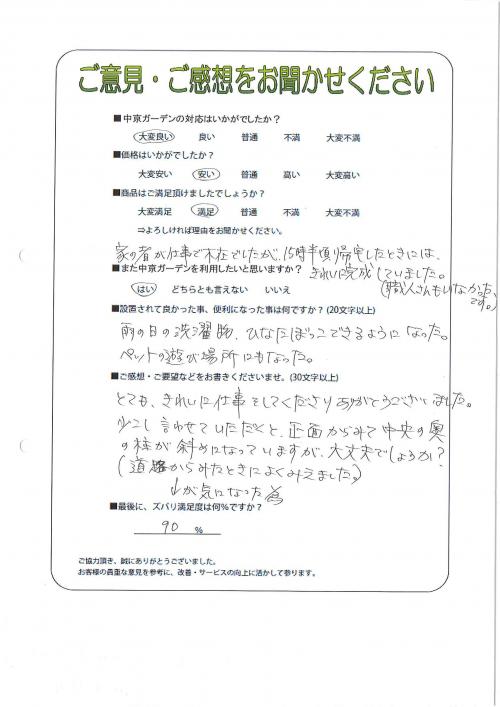 ご意見・ご感想をお聞かせください
■中京ガーデンの対応はいかがでしたか?
大変良い 良い 普通 不満 大変不満
■価格はいかがでしたか?
大変安い 安い 普通 高い 大変高い
■商品はご満足頂けましたでしょうか?
大変満足 満足 普通 不満 大変不満
⇒よろしければ理由をお聞かせください。
家の者が仕事で不在でしたが、15時半頃帰宅したときには、
きれいに完成していました。
(職人さんもいなかったです。)
■また中京ガーデンを利用したいと思いますか?
はい どちらとも言えない いいえ
■設置されて良かった事、便利になった事は何ですか?(20文字以上)
雨の日の洗濯物、ひなたぼっこできるようになった。
ペットの遊び場所にもなった。
■ご感想・ご要望などをお書きくださいませ。(30文字以上)
とても、きれいに仕事をしてくださりありがとうございました。
少こし言わせていただくと、正面からみて中央の奥
の柱が斜めになっていますが、大丈夫でしょうか?
(道路からみたときによくみえました。)
↓が気になった為
■最後に、ズバリ満足度は何%ですか?
90 %
ご協力頂き、誠にありがとうございました。
お客様の貴重な意見を参考に、改善・サービスの向上に活かして参ります。